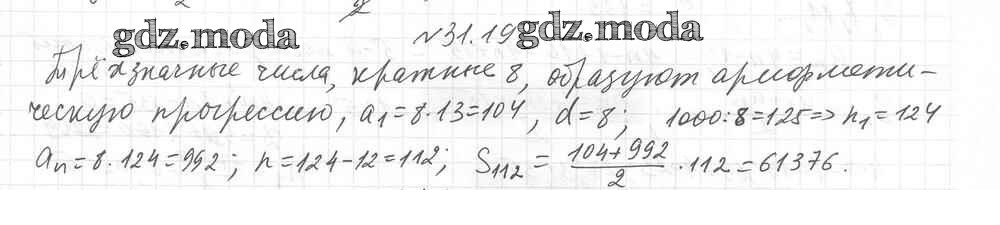 gdz.moda №31.19 gdz.moda
Трёхзначные числа, кратные 8, образуют арифмети-
ческую прогрессию, a₁=8·13=104, d=8; 1000:8=125=>n₁=124
aₙ=8·124=992; n=124-12=112; S₁₁₂ = (104+992)/2 ·112=61376.